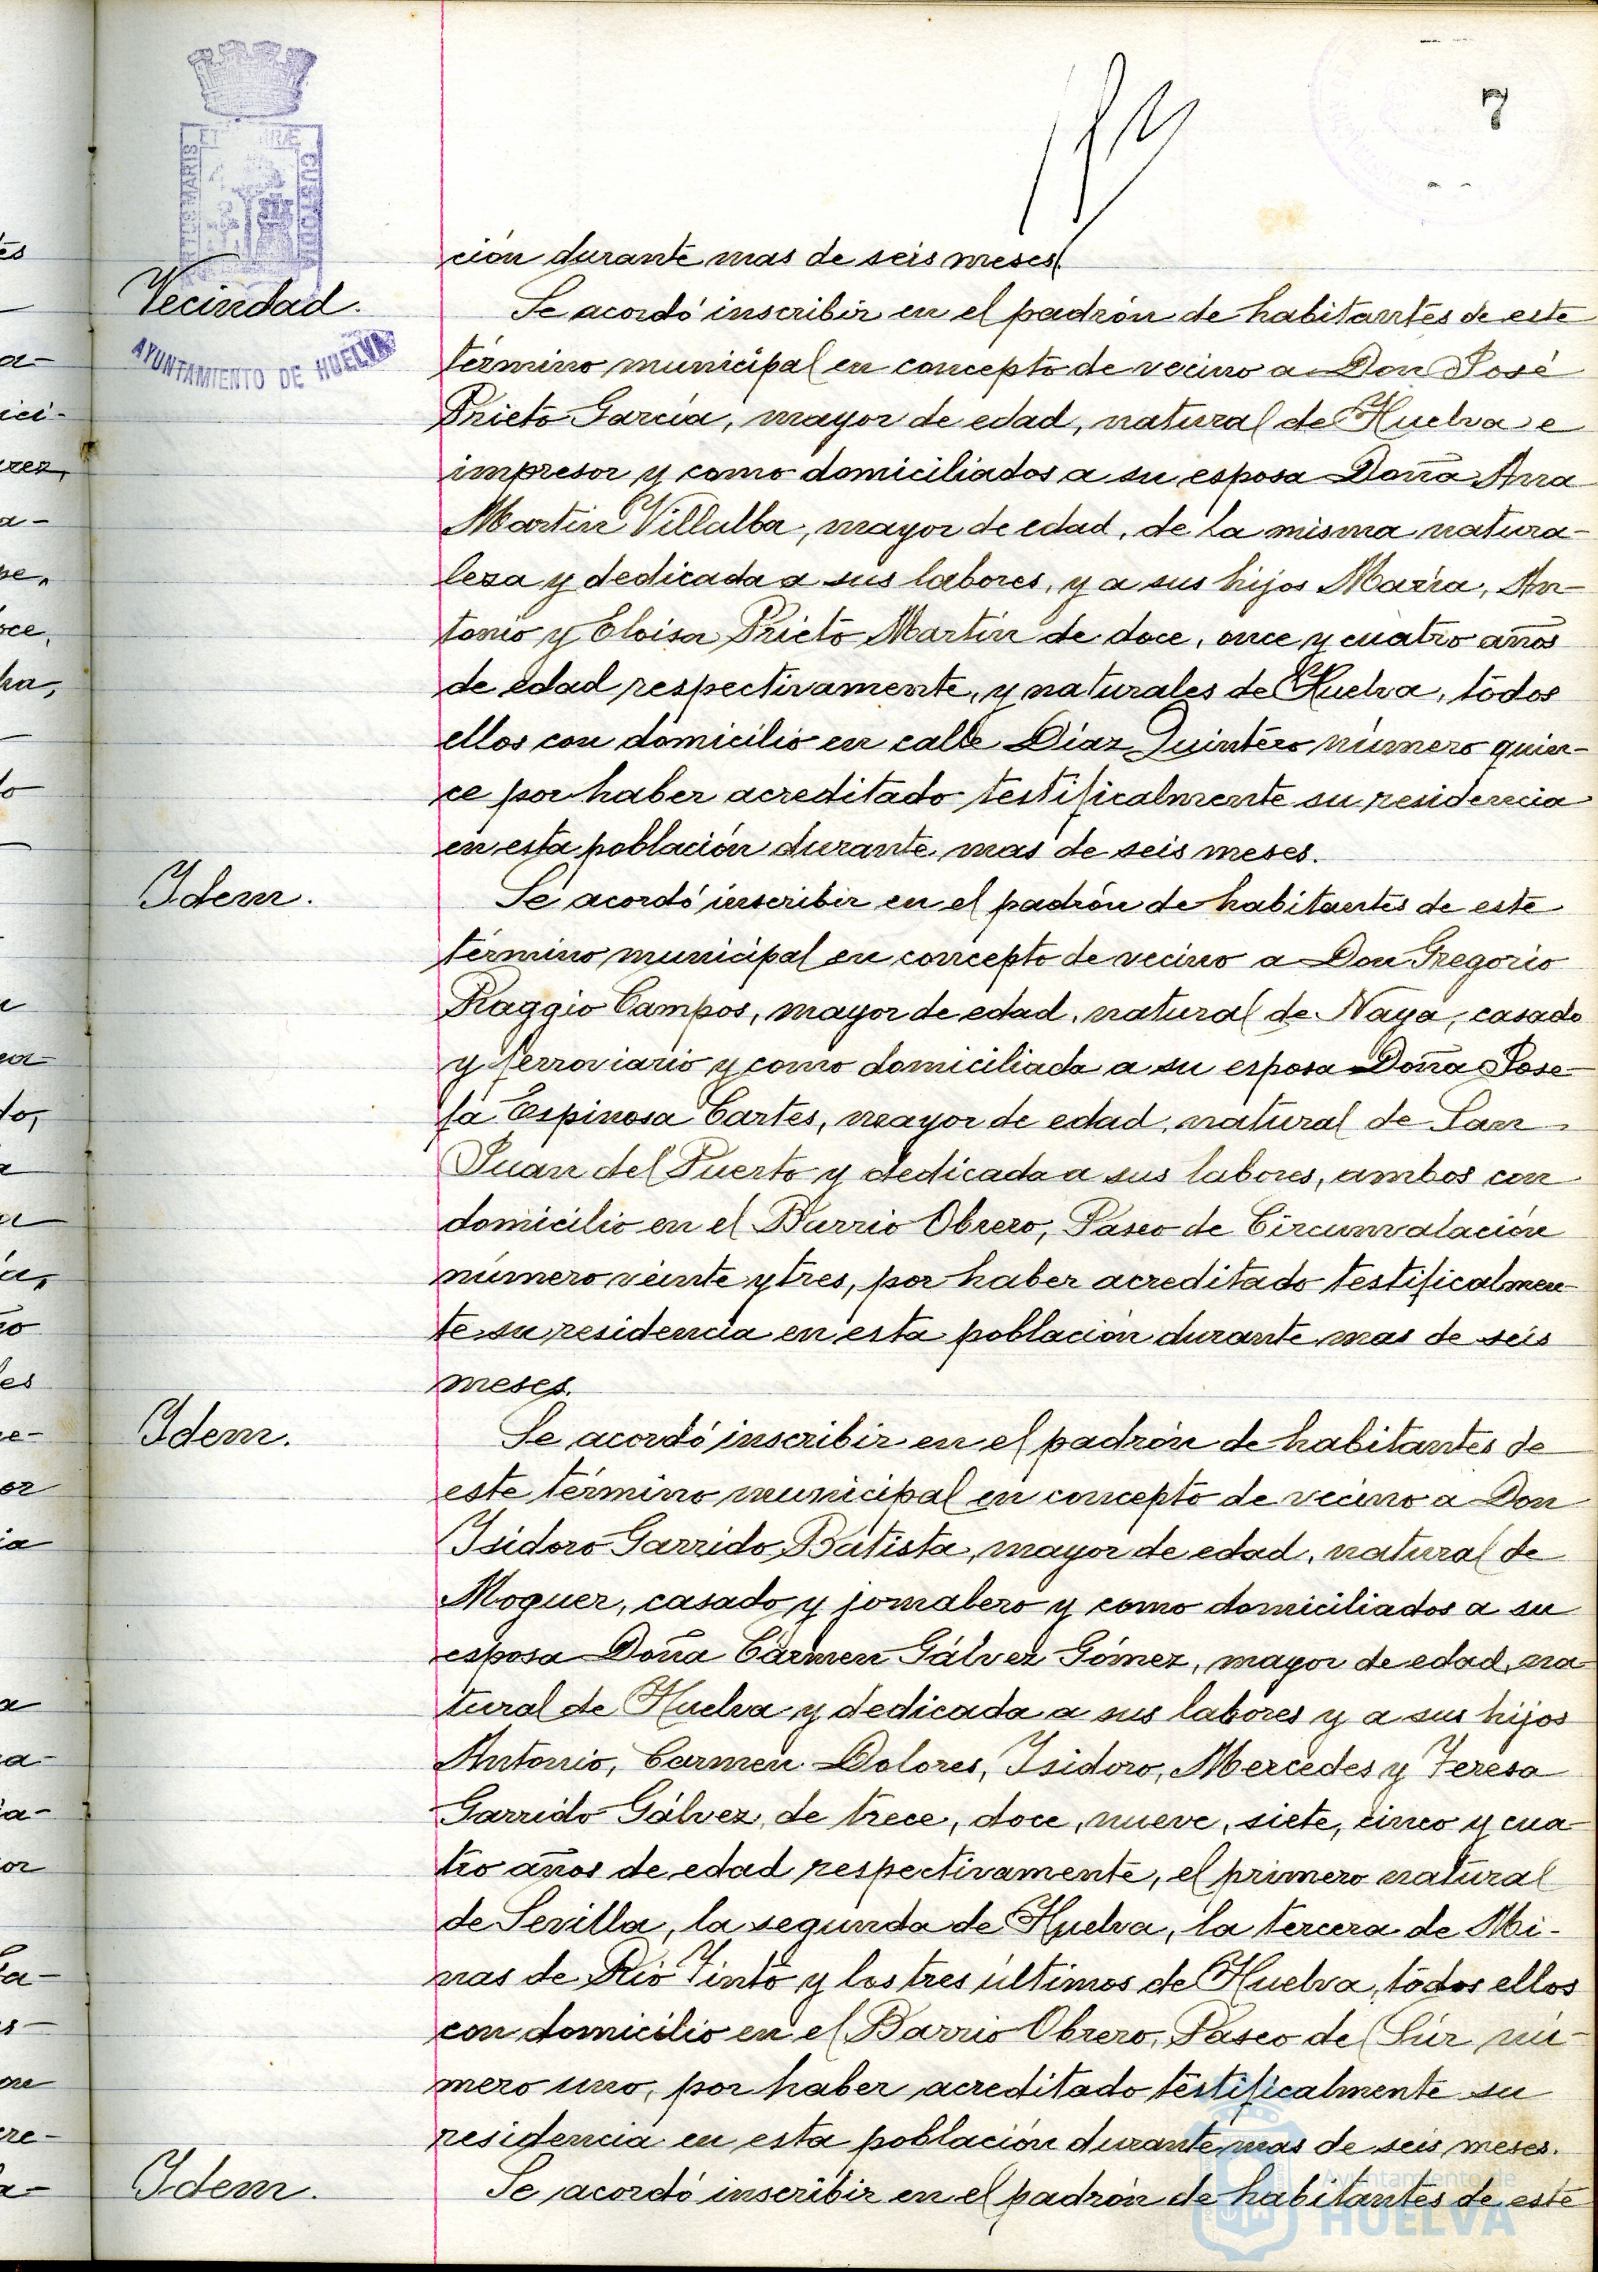 7
ción durante mas de seis meses.
Vecindad.
Se acordó inscribir en el padrón de habitantes de este
AYUNTAMIENTO DE HUELVA
término municipal en concepto de vecino a Don José
Prieto García, mayor de edad, natural de Huelva e
impresor y como domiciliados a su esposa Doña Ana
Martín Villalba, mayor de edad, de la misma natura-
leza y dedicada a sus labores, y a sus hijos María, An-
tonio y Eloisa Prieto Martín de doce, once y cuatro años
de edad respectivamente, y naturales de Huelva, todos
ellos con domicilio en calle Díaz Quintero número quin-
ce por haber acreditado testificalmente su residencia
en esta población durante mas de seis meses.
Idem.
Se acordó inscribir en el padrón de habitantes de este
término municipal en concepto de vecino a Don Gregorio
Raggio Campos, mayor de edad, natural de Naya, casado
y ferroviario y como domiciliada a su esposa Doña Jose-
fa Espinosa Cartes, mayor de edad, natural de San
Juan del Puerto y dedicada a sus labores, ambos con
domicilio en el Barrio Obrero, Paseo de Circunvalación
número veinte y tres, por haber acreditado testificalmen-
te su residencia en esta población durante mas de seis
meses.
Idem.
Se acordó inscribir en el padrón de habitantes de
este término municipal en concepto de vecino a Don
Isidoro Garrido Batista, mayor de edad, natural de
Moguer, casado y jornalero y como domiciliados a su
esposa Doña Cármen Gálvez Gómez, mayor de edad, na
tural de Huelva y dedicada a sus labores y a sus hijos
Antonio, Carmen Dolores, Isidoro, Mercedes y Teresa
Garrido Gálvez, de trece, doce, nueve, siete, cinco y cua-
tro años de edad respectivamente, el primero natural
de Sevilla, la segunda de Huelva, la tercera de Mi-
nas de Río Tinto y los tres últimos de Huelva, todos ellos
con domicilio en el Barrio Obrero, Paseo del Súr nú-
mero uno, por haber acreditado testificalmente su
residencia en esta población durante mas de seis meses.
Idem.
Se acordó inscribir en el padrón de habitantes de este
Ayuntamiento de
HUELVA